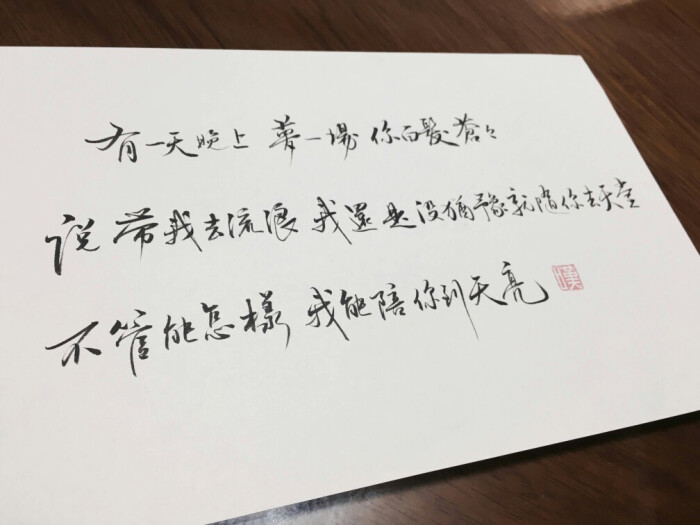 有一天晚上 夢一場 你白髮蒼々
说带我去流浪 我還是没猶豫就随你去天堂
不管能怎樣 我能陪你到天亮